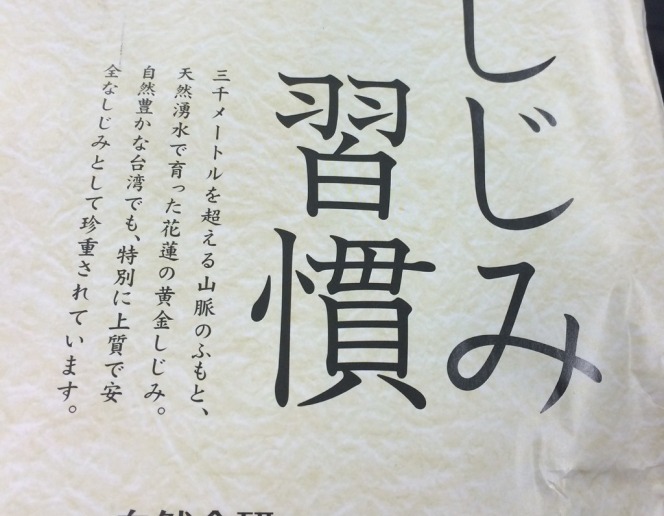 しじみ
習慣
三千メートルを超える山脈のふもと、
天然湧水で育った花蓮の黄金しじみ。
自然豊かな台湾でも、特別に上質で安
全なしじみとして珍重されています。